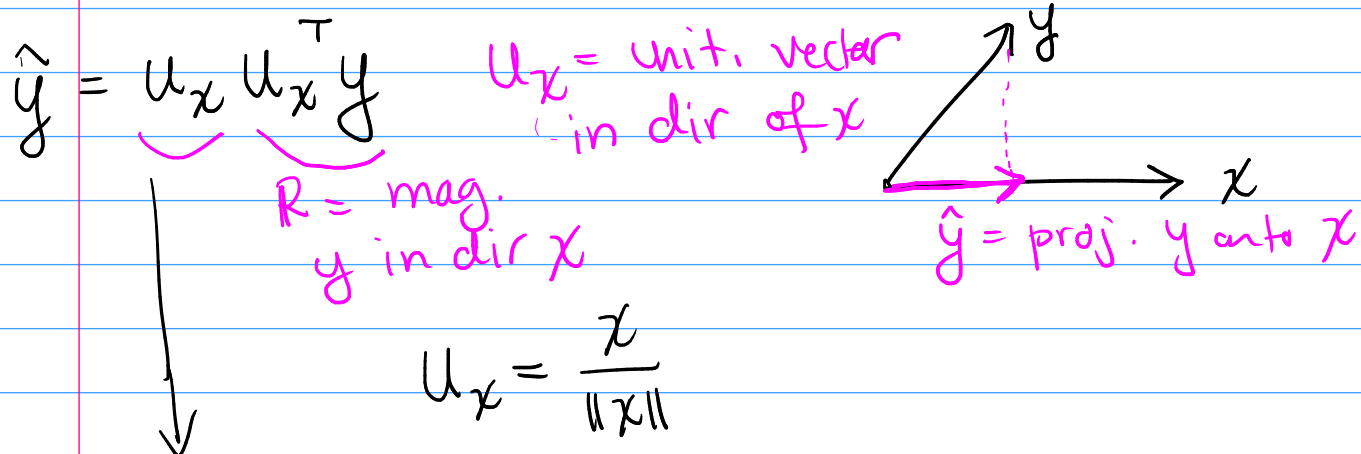 ŷ = u_x u_x^T y
u_x = unit. vector
in dir of x
R = mag.
y in dir x
u_x = x / ||x||
y
x
ŷ = proj. y onto x